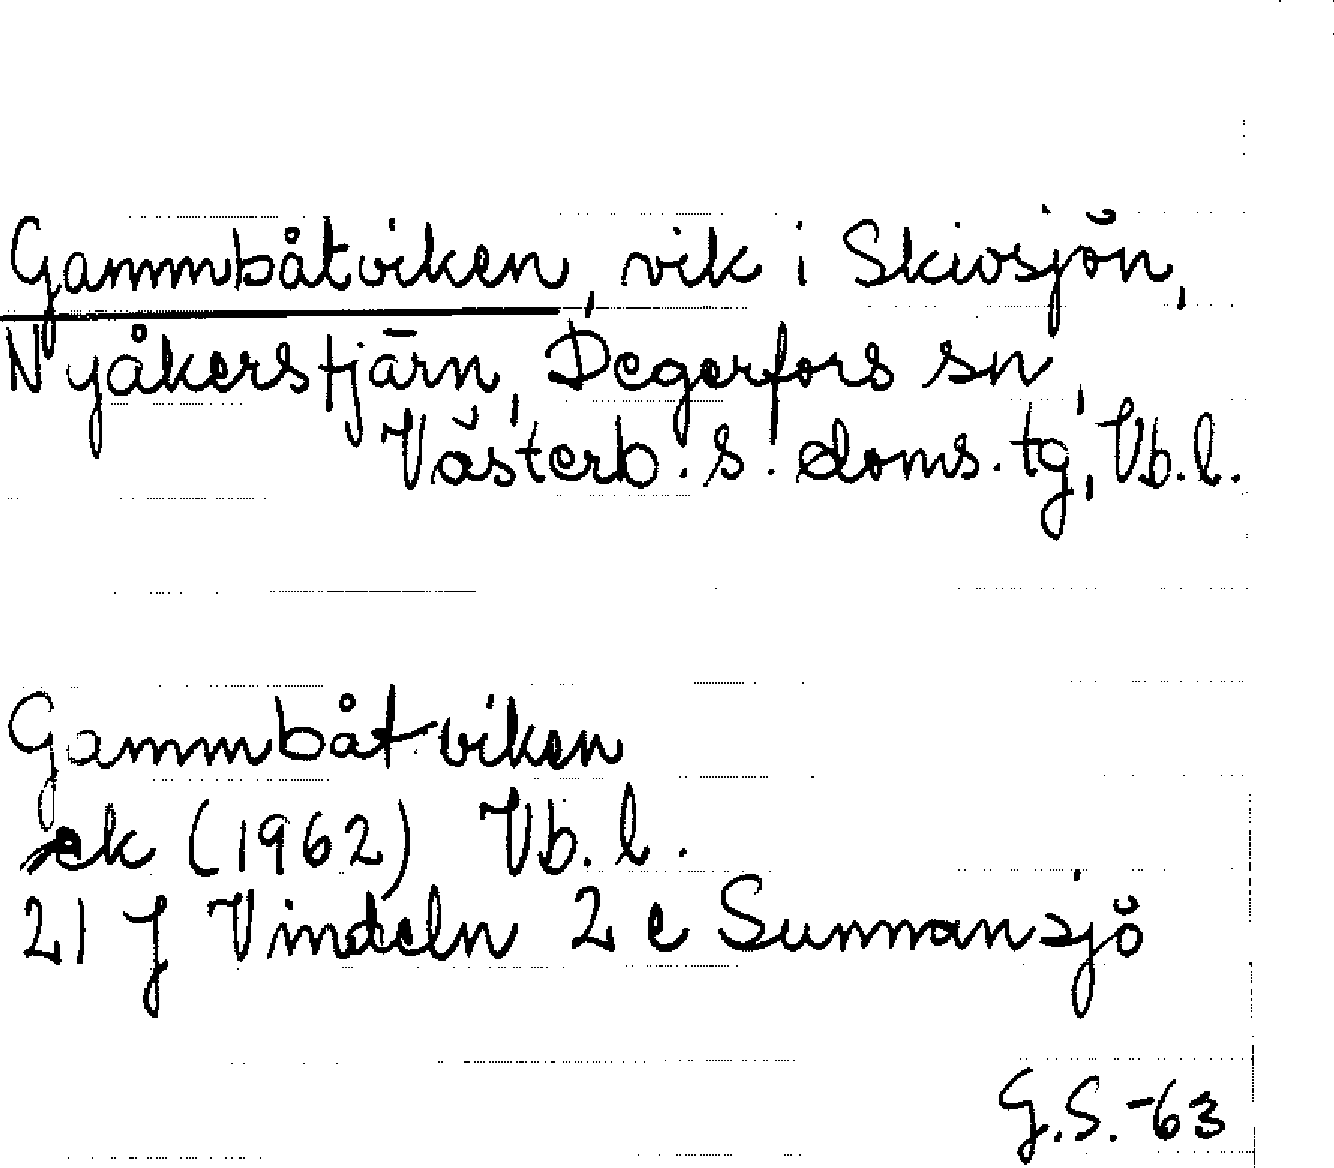 Gammbåtviken, vik i Skivsjön,
Nyåkerstjärn, Degerfors sn,
Västerb. s. doms. tg, Vb. l.
Gammbåtviken
ek (1962) Vb. l.
21 J Vindeln 2 e Sunnansjö
G.S.-63